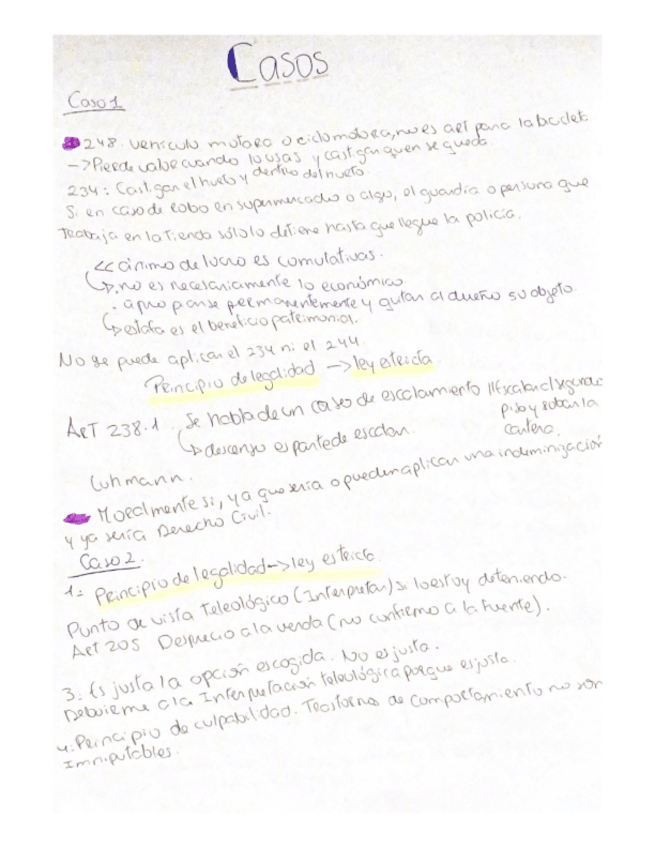 Casos
Caso 1
248. vehículo motora o ciclomotora, no es art para la biciclet
-> Pierde valor cuando lo usas y castigan quien se queda
dentro del hurto.
234: Castigan el hurto y
Si en caso de robo en supermercado o algo, el guardia o persona que
trabaja en la tienda sólo lo detiene hasta que llegue la policía.
<< ánimo de lucro es comulativas.
no es necesariamente lo económico
· apropiarse permanentemente y quitar al dueño su objeto.
estafa es el beneficio patrimonial.
No se puede aplicar el 234 ni el 244.
Principio de legalidad -> ley estricta
Art 238.1. Se habla de un caso de escalamiento // Escalar el segundo
piso y robar la
cartera.
descenso es parte de escalar
Luhmann.
Moralmente si, ya que sería o pueden aplicar una indeminización
y ya sería Derecho Civil.
Caso 2.
1: Principio de legalidad -> ley estricta.
Punto de vista Teleológico (Interpretar) si lo estoy deteniendo.
Art 205 Desprecio a la verda (no confirmo a la fuente).
3: Es justa la opción escogida. No es justa.
Deboierme a la Interpretación teleológica porque es justa.
4: Principio de culpabilidad. Trastornos de comportamiento no son
Imnputables.